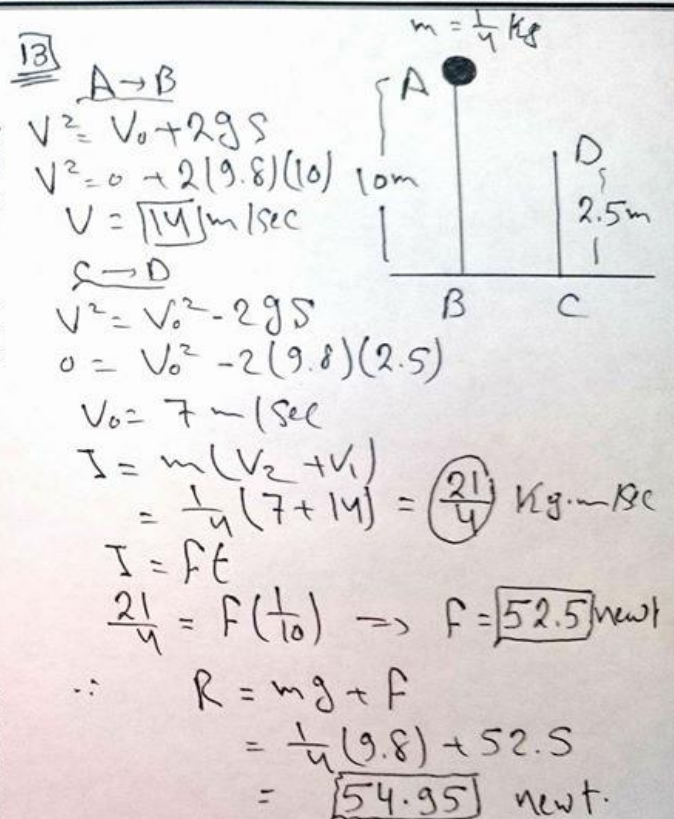 13
m = 1/4 Kg
A → B
V² = V₀ + 2gS
V² = 0 + 2(9.8)(10)
V = 14 m/sec
A
10m
D
2.5m
B
C
C → D
V² = V₀² - 2gS
0 = V₀² - 2(9.8)(2.5)
V₀ = 7 m/sec
I = m(V₂ + V₁)
= 1/4 (7 + 14) = 21/4 Kg.m/sec
I = Ft
21/4 = F(1/10) → F = 52.5 newt
∴ R = mg + F
= 1/4 (9.8) + 52.5
= 54.95 newt.